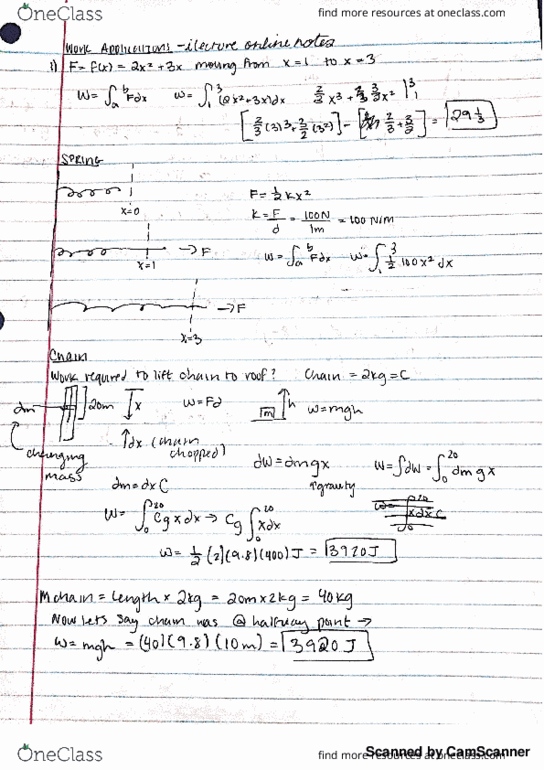 OneClass
find more resources at oneclass.com
Work Applications - ilecture online notes
1) F = f(x) = 2x² + 3x moving from x=1 to x=3
W = ∫ₐᵇ Fdx W = ∫₁³ (2x²+3x)dx 2/3 x³ + 3/2 x² |₁³
[2/3 (3)³ + 3/2 (3²)] - [2/3 + 3/2] = 29 1/3
SPRING
x=0
F = ½ kx²
K = F/d = 100N/1m = 100 N/m
→ F
x=1
W = ∫ₐᵇ Fdx W = ∫₁³ ½ 100x² dx
→ F
x=3
Chain
Work required to lift chain to roof? Chain = 2kg = C
dm 20m x W = Fd m h W = mgh
changing mass
↑dx (chain chopped)
dW = dmgx W = ∫dW = ∫₀²⁰ dm g x
gravity
dm = dx C
W = ∫₀²⁰ C g x dx → Cg ∫₀²⁰ x dx
W = ½ (2)(9.8)(400) J = 3920 J
M chain = length x 2kg = 20m x 2kg = 40kg
Now lets say chain was @ halfway point →
W = mgh = (40)(9.8)(10m) = 3920 J
OneClass
find more resources at oneclass.com
Scanned by CamScanner